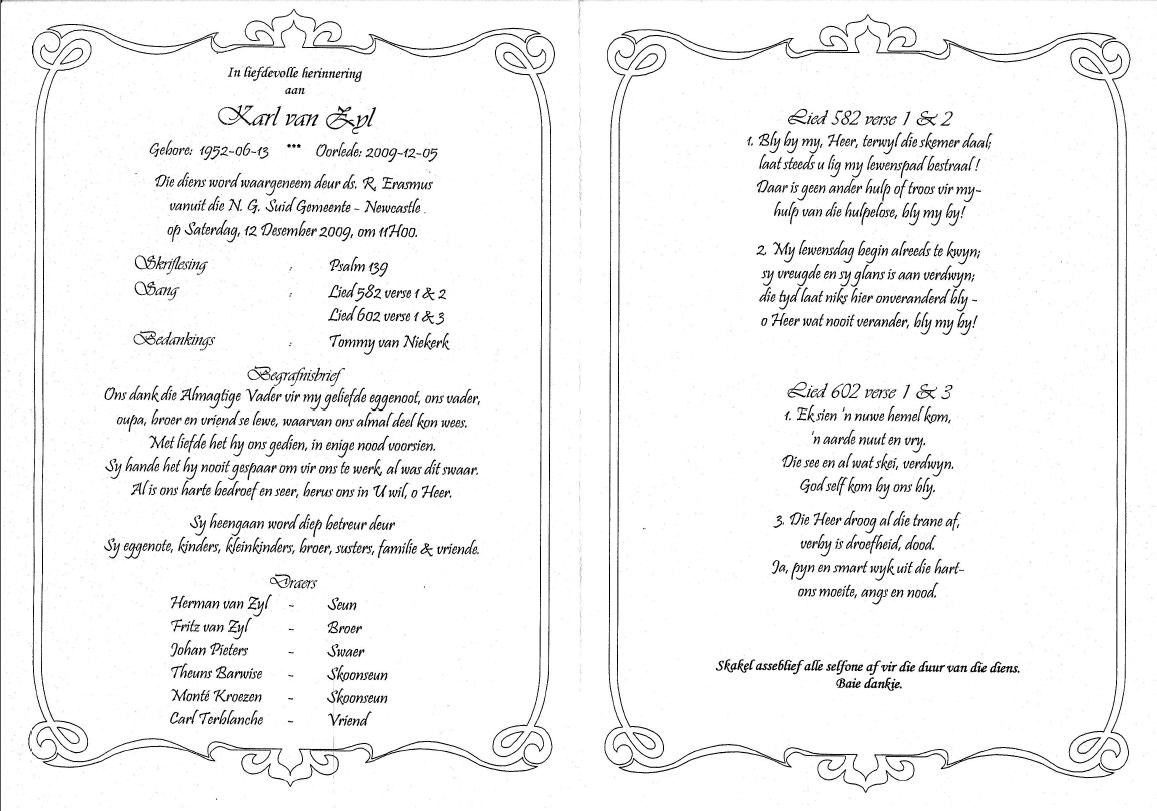 In liefdevolle herinnering
aan
Karl van Zyl
Gebore: 1952-06-13 *** Oorlede: 2009-12-05
Die diens word waargeneem deur ds. R. Erasmus
vanuit die N. G. Suid Gemeente - Newcastle .
op Saterdag, 12 Desember 2009, om 11H00.
Skriflesing : Psalm 139
Sang : Lied 582 verse 1 & 2
Lied 602 verse 1 & 3
Bedankings : Tommy van Niekerk
Begrafnisbrief
Ons dank die Almagtige Vader vir my geliefde eggenoot, ons vader,
oupa, broer en vriend se lewe, waarvan ons almal deel kon wees.
Met liefde het hy ons gedien, in enige nood voorsien.
Sy hande het hy nooit gespaar om vir ons te werk, al was dit swaar.
Al is ons harte bedroef en seer, berus ons in U wil, o Heer.
Sy heengaan word diep betreur deur
Sy eggenote, kinders, kleinkinders, broer, susters, familie & vriende.
Draers
Herman van Zyl - Seun
Fritz van Zyl - Broer
Johan Pieters - Swaer
Theuns Barwise - Skoonseun
Monté Kroezen - Skoonseun
Carl Terblanche - Vriend
Lied 582 verse 1 & 2
1. Bly by my, Heer, terwyl die skemer daal;
laat steeds u lig my lewenspad bestraal !
Daar is geen ander hulp of troos vir my-
hulp van die hulpelose, bly my by!
2. My lewensdag begin alreeds te kwyn;
sy vreugde en sy glans is aan verdwyn;
die tyd laat niks hier onveranderd bly -
o Heer wat nooit verander, bly my by!
Lied 602 verse 1 & 3
1. Ek sien 'n nuwe hemel kom,
'n aarde nuut en vry.
Die see en al wat skei, verdwyn.
God self kom by ons bly.
3. Die Heer droog al die trane af,
verby is droefheid, dood.
Ja, pyn en smart wyk uit die hart-
ons moeite, angs en nood.
Skakel asseblief alle selfone af vir die duur van die diens.
Baie dankie.